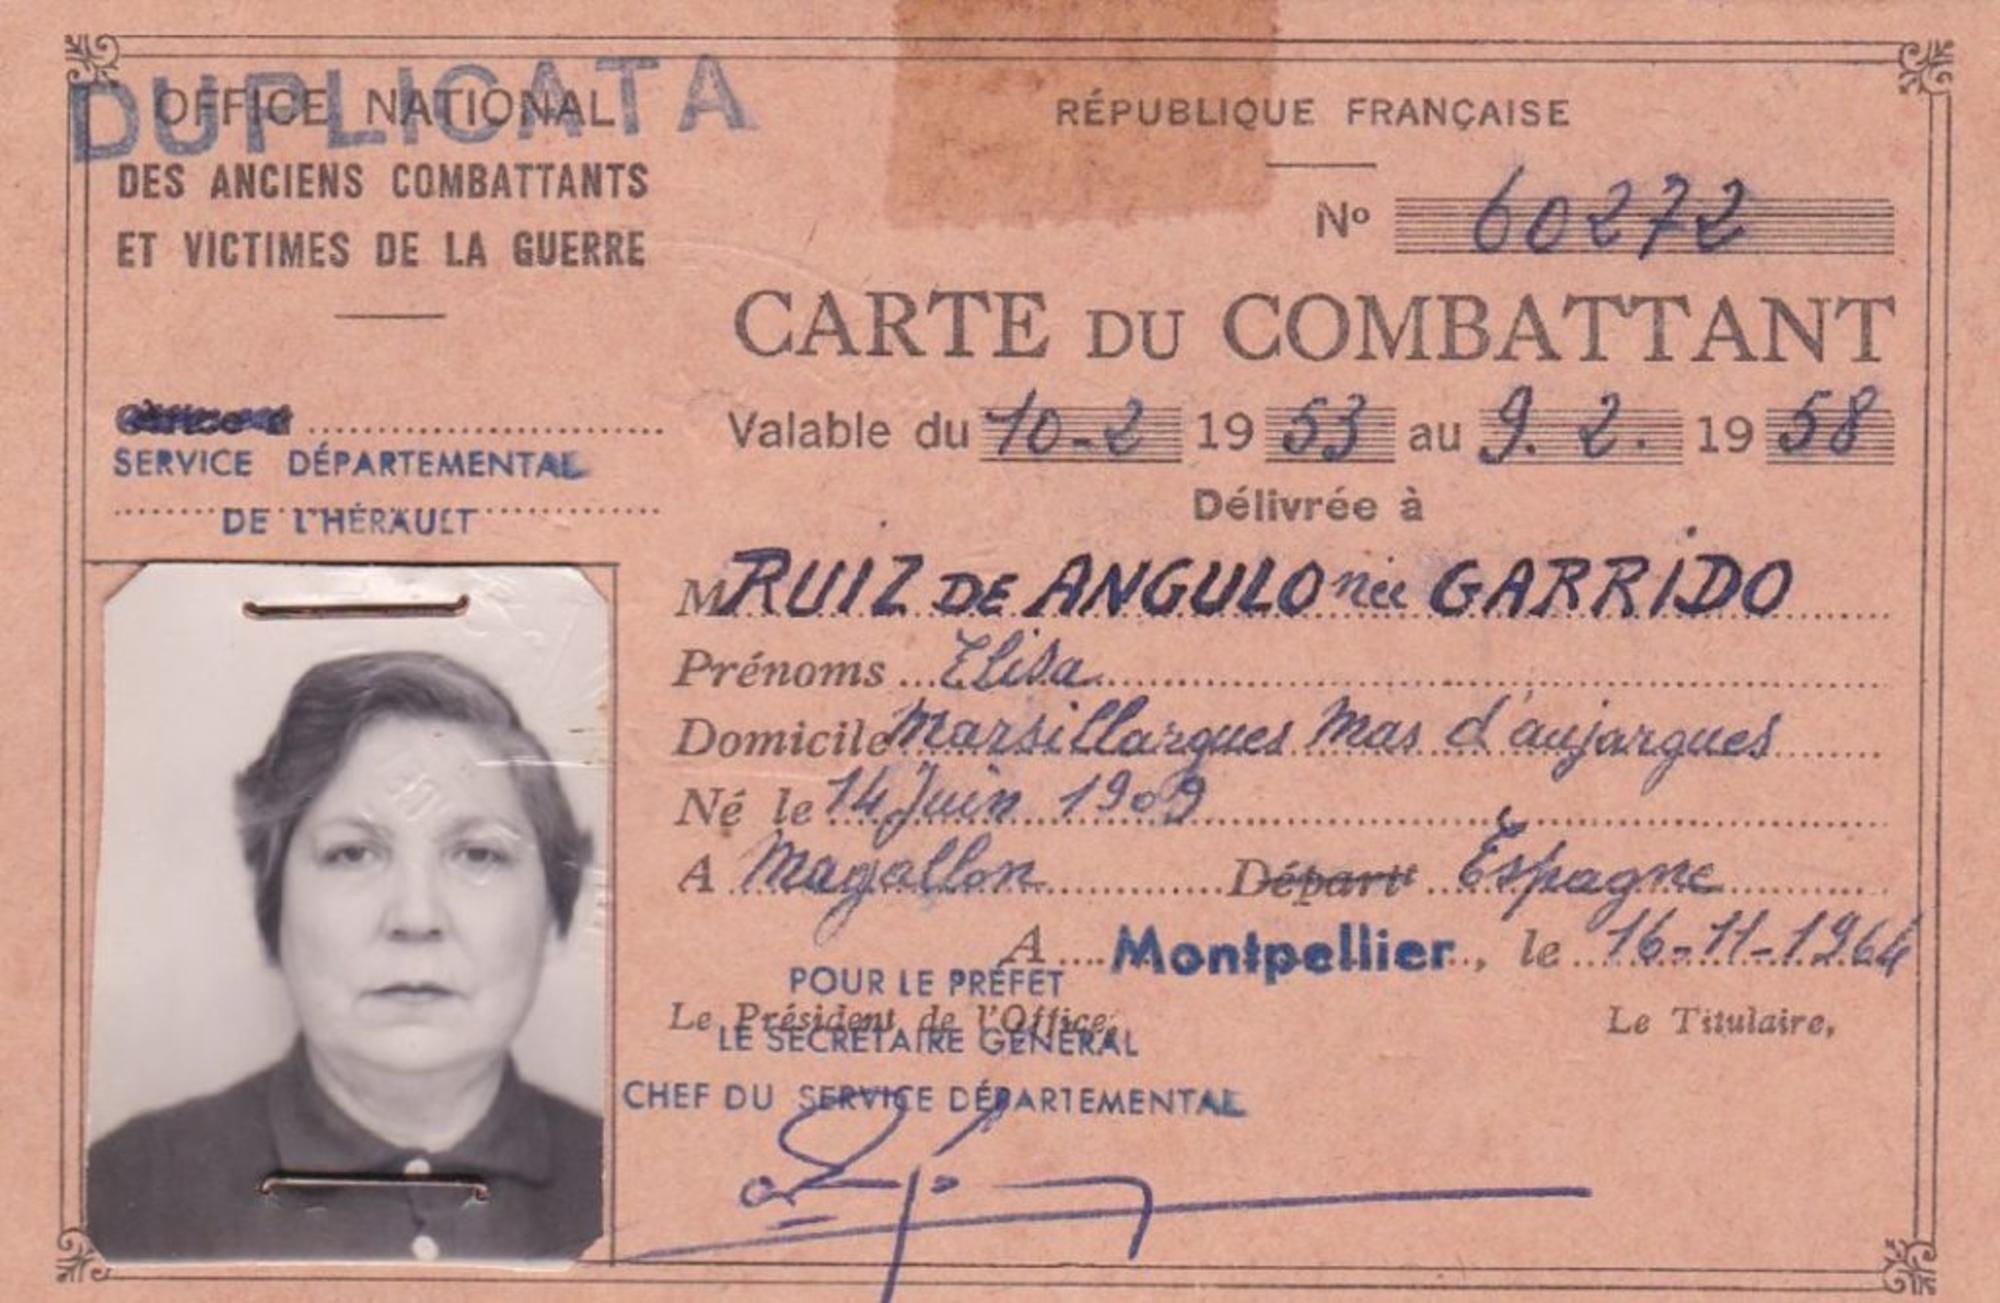 DUPLICATA
OFFICE NATIONAL
DES ANCIENS COMBATTANTS
ET VICTIMES DE LA GUERRE
SERVICE DÉPARTEMENTAL
DE L'HÉRAULT
RÉPUBLIQUE FRANÇAISE
No 60272
CARTE DU COMBATTANT
Valable du 10-2 1953 au 9.2. 1958
Délivrée à
M RUIZ DE ANGULO née GARRIDO
Prénoms Elisa
Domicile Marsillargues Mas d'aujargues
Né le 14 Juin 1909
A Magallon Départt Espagne
A Montpellier, le 16-11-1964
POUR LE PRÉFET
Le Président de l'Office,
Le Titulaire,
LE SECRÉTAIRE GÉNÉRAL
CHEF DU SERVICE DÉPARTEMENTAL